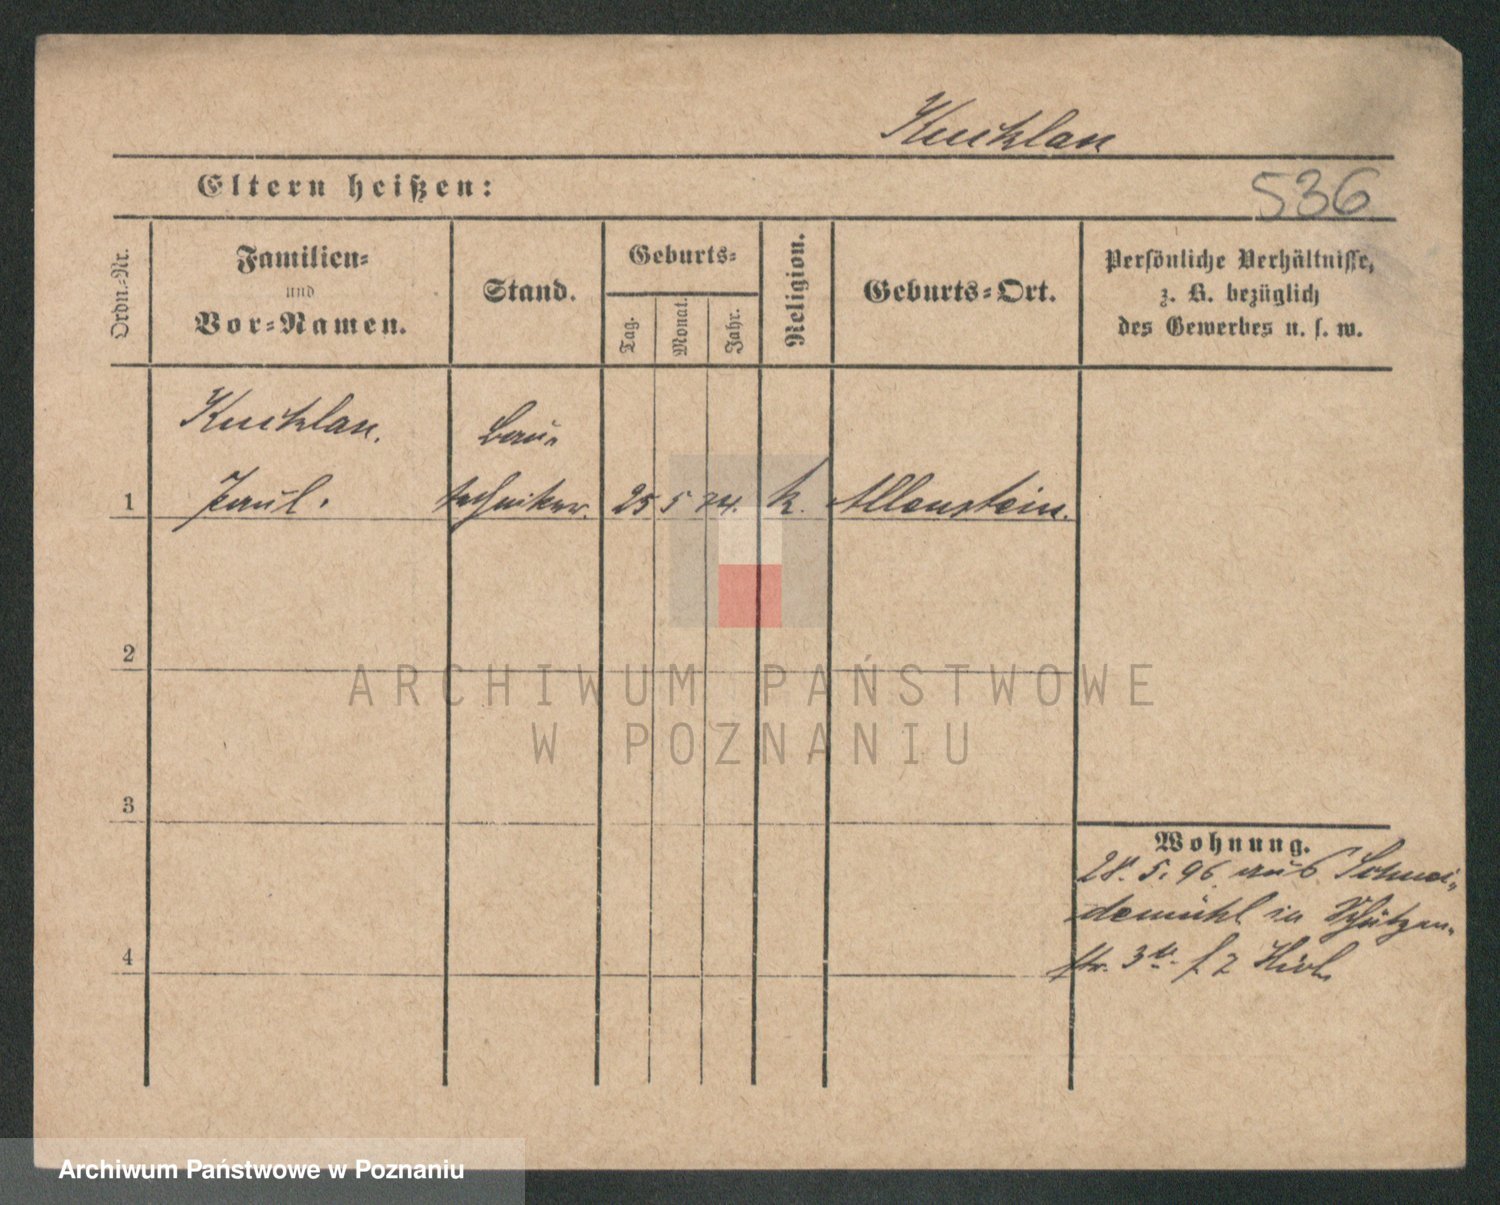 Kucklan
Eltern heißen:
536
Ordn.-Nr.
Familien-
und
Vor-Namen.
Stand.
Geburts-
Tag.
Monat.
Jahr.
Religion.
Geburts-Ort.
Persönliche Verhältnisse,
z. B. bezüglich
des Gewerbes u. s. w.
Kucklan.
Bau-
1
Paul.
techniker.
25
5
74.
k.
Allenstein.
2
ARCHIWUM PAŃSTWOWE
W POZNANIU
3
Wohnung.
28. 5. 96 aus Schnei-
demühl in Schützen-
4
str. 3
Archiwum Państwowe w Poznaniu